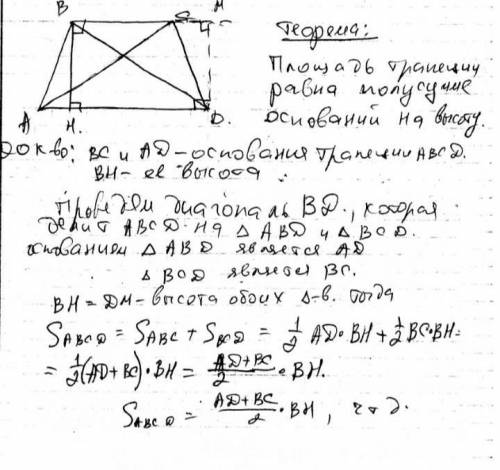 B C M
A H. D.
Теорема:
Площадь трапеции
равна полусумме
оснований на высоту.
Док-во: BC и AD - основания трапеции ABCD.
BH - её высота
Проведём диагональ BD, которая
делит ABCD на △ABD и △BCD.
основанием △ABD является AD
△BCD является BC.
BH = DM - высота обоих △-в. тогда
S_ABCD = S_ABC + S_BCD = 1/2 AD·BH + 1/2 BC·BH =
= 1/2 (AD+BC)·BH = AD+BC/2 · BH.
S_ABCD = AD+BC/2 · BH, чтд.